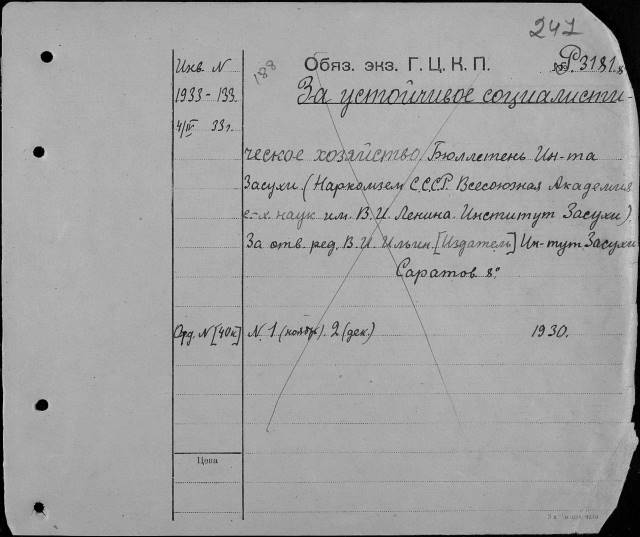 247
Инв. N
188
Обяз. экз. Г. Ц. К. П.
Р.3181.
1933-133.
За устойчивое социалисти-
4/IV 33г.
ческое хозяйство. Бюллетень Ин-та
Засухи. (Наркомзем С.С.С.Р. Всесоюзная Академия
с-х. наук им. В. И. Ленина. Институт Засухи).
За отв. ред. В. И. Ильин. [Издатель] Ин-тут. Засухи
Саратов 8°
Орд. N [40к] N. 1 (ноябр.). 2 (дек.) 1930.
Цена